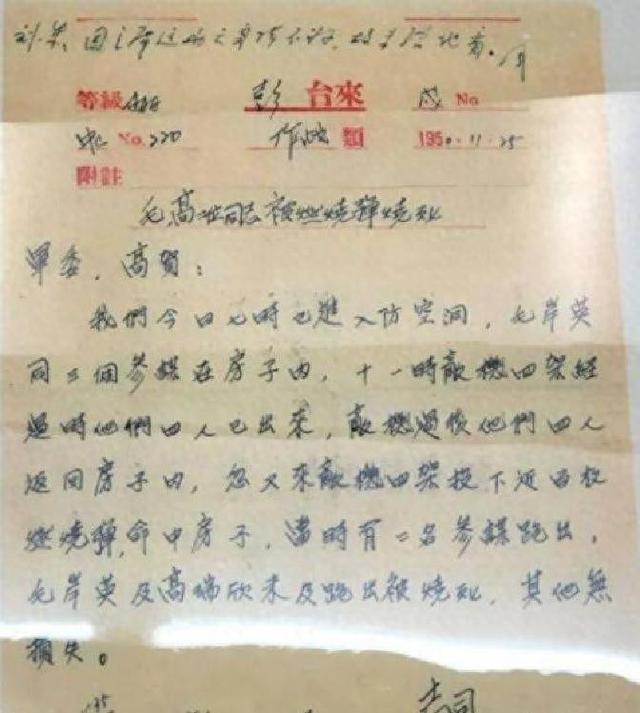 等級 彭 台來 戌 No
No. 220 作 類 1950.11.25
附註
毛高二同志被燃燒彈燒死
軍委，高賀：
我們今日七時已進入防空洞，毛岸英
同三個參謀在房子內，十一時敵機四架經
過時他們四人已出來，敵機過後他們四人
返回房子內，忽又來敵機四架投下近百枚
燃燒彈，命中房子，當時有二名參謀跑出，
毛岸英及高瑞欣未及跑出被燒死，其他無
損失。
志司